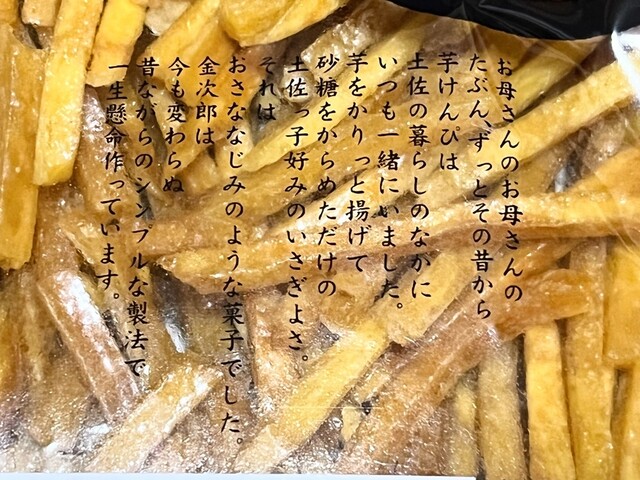 お母さんのお母さんの
たぶん、ずっとその昔から
芋けんぴは
土佐の暮らしのなかに
いつも一緒にいました。
芋をかりっと揚げて
砂糖をからめただけの
土佐っ子好みのいさぎよさ。
それは
おさななじみのような菓子でした。
金次郎は
今も変わらぬ
昔ながらのシンプルな製法で
一生懸命作っています。